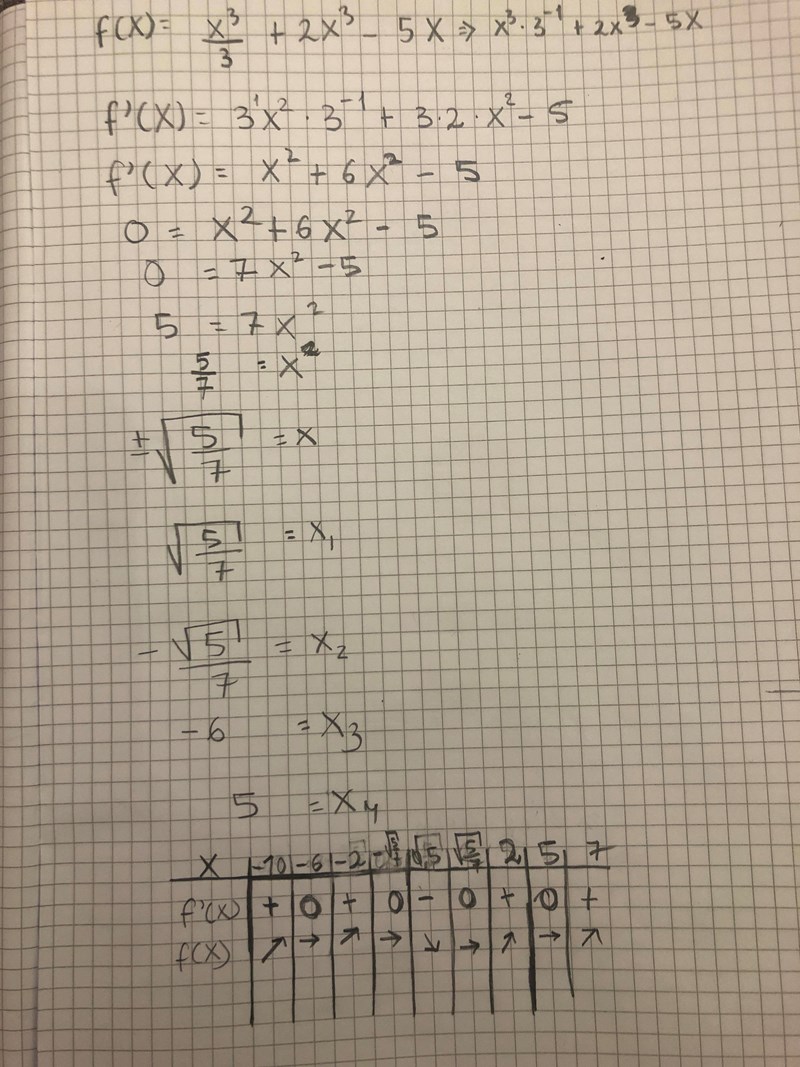 f(x) = x³/3 + 2x³ - 5x ⇒ x³·3⁻¹ + 2x³ - 5x
f'(x) = 3¹x²·3⁻¹ + 3·2·x² - 5
f'(x) = x² + 6x² - 5
0 = x² + 6x² - 5
0 = 7x² - 5
5 = 7x²
5/7 = x²
±√(5/7) = x
√(5/7) = x₁
-√5/7 = x₂
-6 = x₃
5 = x₄
x | -10 | -6 | -2 | -√(5/7) | √5 | √(5/7) | 2 | 5 | 7
f'(x) | + | 0 | + | 0 | - | 0 | + | 0 | +
f(x) | ↗ | → | ↗ | → | ↘ | → | ↗ | → | ↗